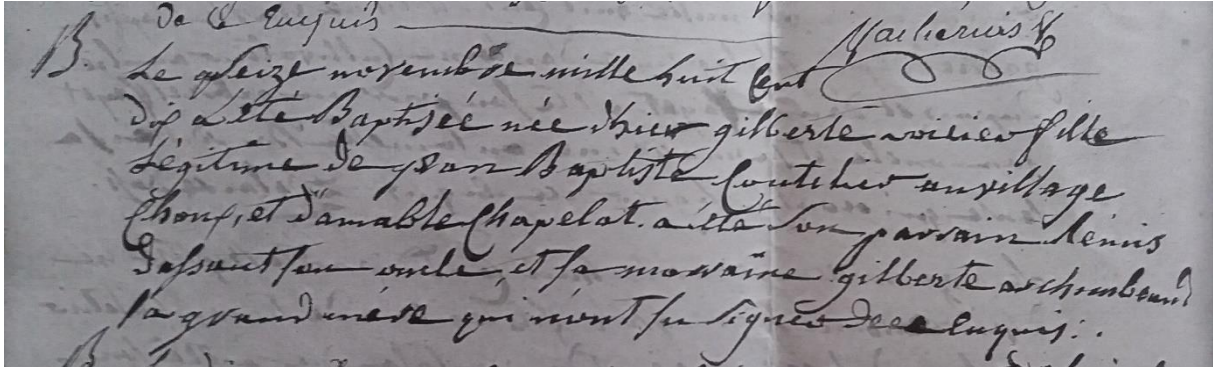 de ce Enquis
B. Le seize novembre mille huit Cent
dix a été Baptisée née d'hier gilberte fille
Légitime de jean Baptiste Coutelier au village
Choux, et d'amable Chapelat. a été Son parrain
dassaut son oncle, et sa maraine gilberte archembaud
sa grand mère qui n'ont su signer de ce Enquis.